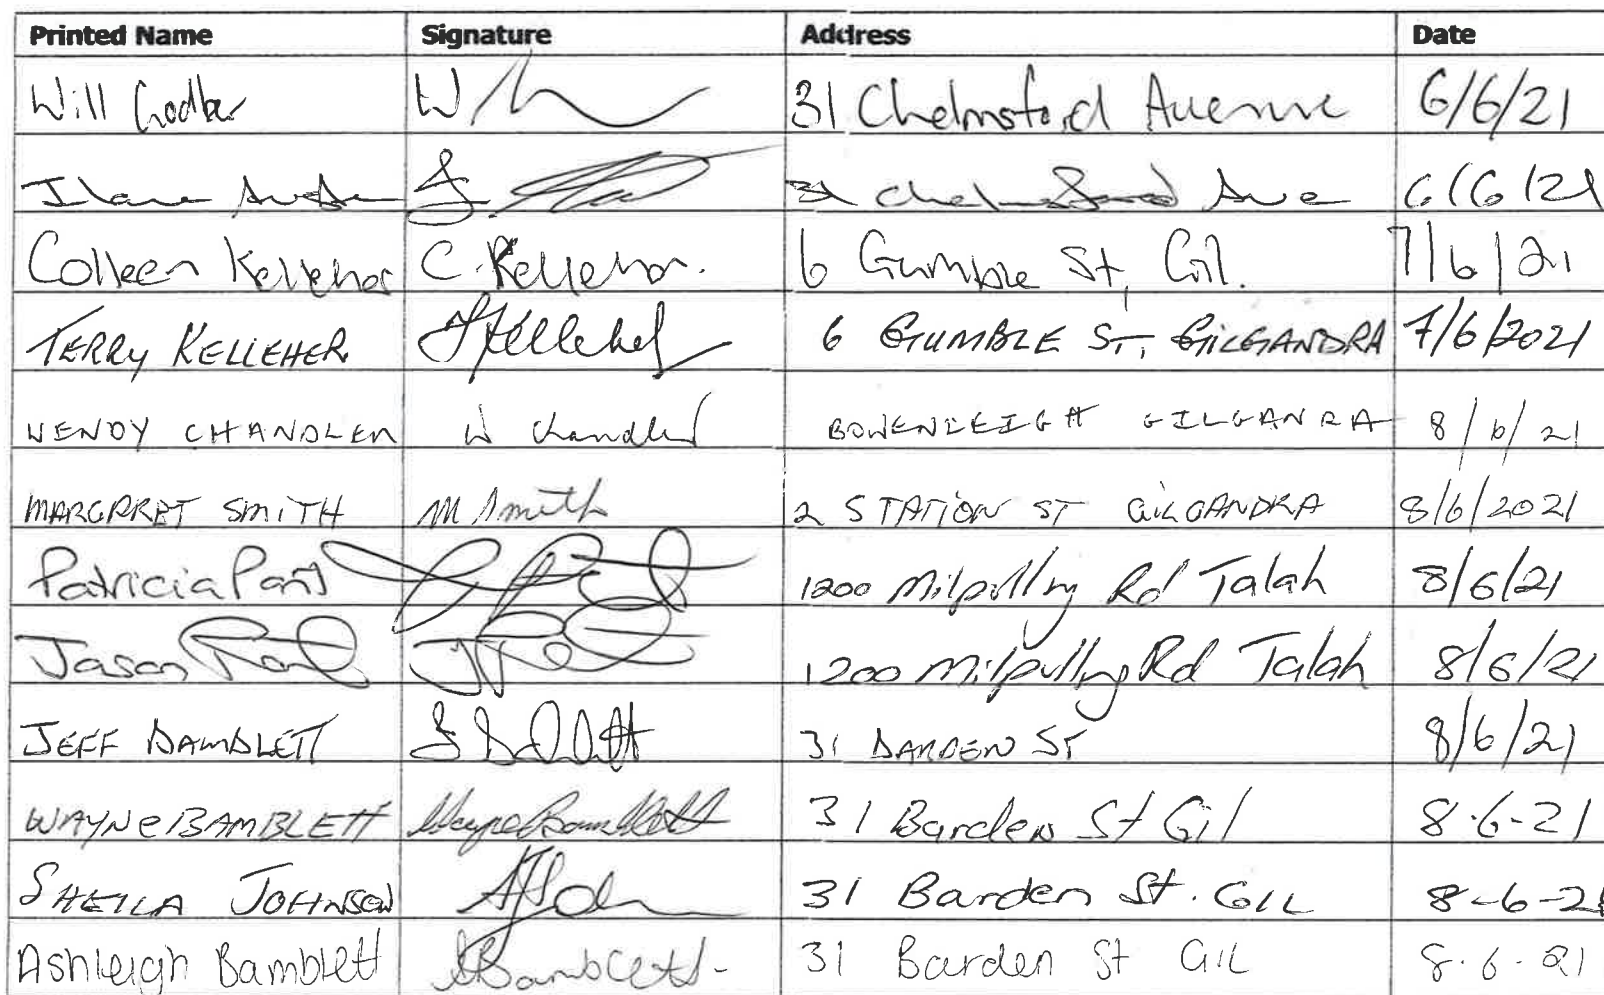 Printed Name Signature Address Date
Will 31 Chelmsford Avenue 6/6/21
31 Chelmsford Ave 6/6/21
Colleen Kelleher C. Kelleher. 6 Gumble St, Gil. 7/6/21
TERRY KELLEHER Kelleher 6 GUMBLE ST, GILGANDRA 7/6/2021
WENDY CHANDLER W Chandler BOWENLEIGH GILGANRA 8/6/21
MARGARET SMITH M Smith 2 STATION ST GILGANDRA 8/6/2021
Patricia 1200 Milpulling Rd Talah 8/6/21
Jason 1200 Milpulling Rd Talah 8/6/21
JEFF BAMBLETT 31 BARDEN ST 8/6/21
WAYNE BAMBLETT Wayne Bamblett 31 Barden St Gil 8-6-21
SHEILA JOHNSON 31 Barden St. GIL 8-6-21
Ashleigh Bamblett ABamblett 31 Barden St GIL 8.6.21